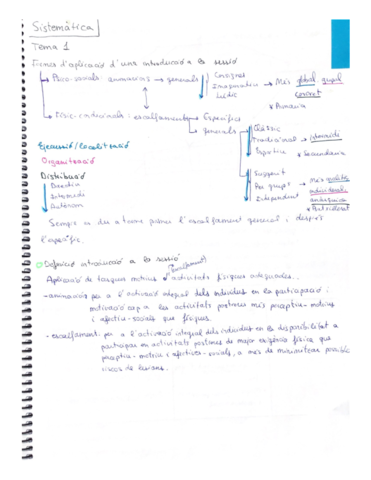 Sistemàtica
Tema 1
Formes d'aplicació d'una introducció a la sessió
Psico-socials: animacions → generals
Consignes
Imaginatiu
Lúdic
→ Més global grupal
context
* Primaria
Físic-individuals: escalfaments
Específics
generals
Clàssic
Tradicional → intermedi
Esportiu
* Secundaria
Suggerit
Per grups
Independent
→ Més
individuals
* Batxillerat
Execució/localització
Organització
Distribució
Directiu
Intermedi
Autònom
Sempre es du a terme primer l'escalfament general i després
l'específic.
Definició introducció a la sessió
(escalfament)
Aplicació de tasques motrius / activitats físiques adequades...
- animacions per a l'activació integral dels individus en la participació i
motivació cap a les activitats postures més perceptiu-motrius
i afectiu-socials que físiques.
- escalfament: per a l'activació integral dels individus en la disponibilitat a
participar en activitats postures de major exigència física que
perceptiu-motriu i afectives-socials, a més de minimitzar possibles
riscos de lesions.